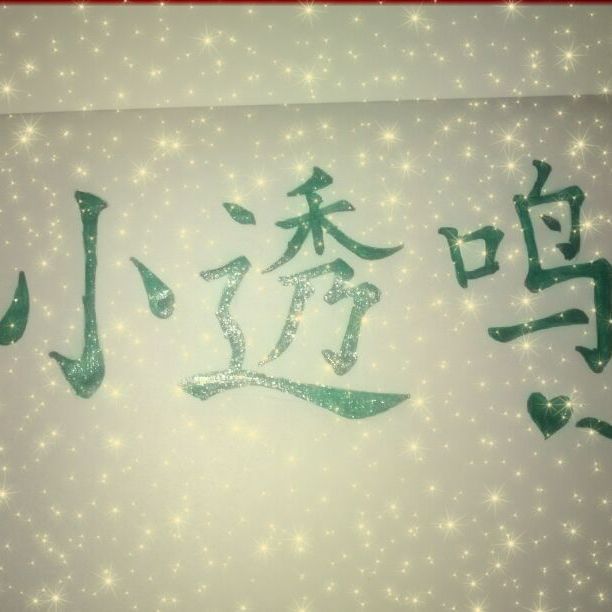 小透鸣